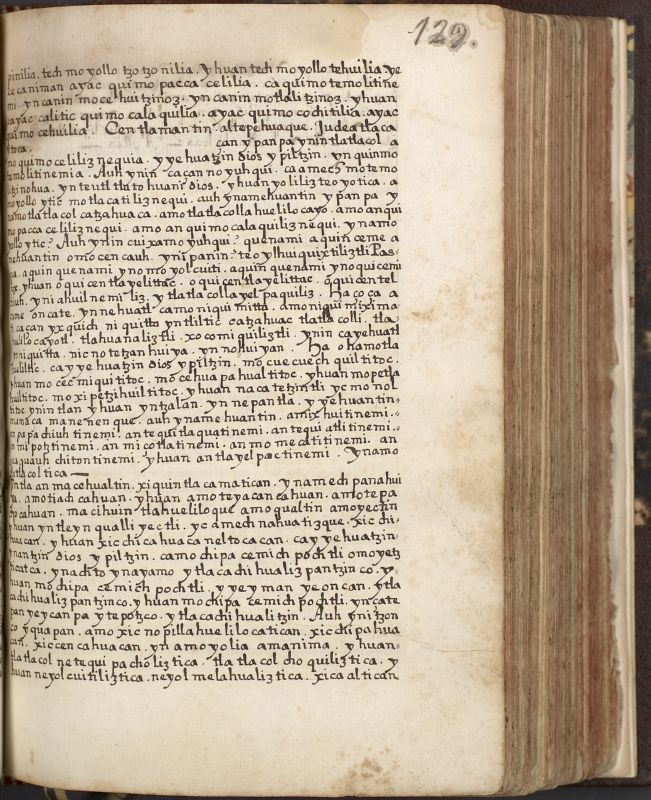 129.
pinilia. tech mo yollo tzo tzo nilia. yhuan tech mo yollo tehuilia. ye
ce ca niman ayac qui mo pacca celilia. ca qui mo temo litine
mi. yn canin mo ce hui tzinoz. yn canin motlali tzinoz. yhuan
ca ayac calitic qui mo cala quilia. ayac qui mo cochitilia. ayac
qui mo cehuilia. Cen tlaman tin altepehuaque. Judea tlaca
can y pan pa ynin tlatlacol a
mo qui mo ce liliz nequia. y ye huatzin Dios y piltzin. yn quin mo
temo litinemia. Auh ynin ca çan no yuhqui. ca a mech mo temo
liti nohua. yn teutl tla to huani Dios. yhuan yo liliz teo yo tica. a
mo yollo ytic mo tlaca ti liz nequi. auh ynamehuantin y pan pa y
namo tla tla col catzahuaca. amo tlatla colla hueli lo cayo. amo an qui
mo pacca ce liliz nequi. amo an qui mo cala quiliz nequi. y namo
yollo ytic? Auh ynin cuix amo yuhqui? quenami aquin ceme a
nehuantin omo cen cauh. yni panin teo ylhui quix tiliztli Pas-
aquin que nami yno mo yol cuiti. aquin quenami yno qui cemi
yhuan o qui cen tla yelittac. o qui cen tla yelittac. o qui cen tel
chiuh. y ni ahuil ne mi liz. y tlatla colla yel pa quiliz. Ha ço ça a
ceme on cate. yn ne huatl ca mo ni qui mitta. amo ni qui mixi ma
ti. ca çan yx quich ni qui tta yn tlil tic catzahuac tlatla colli. tla-
huelilo cayotl. tlahuanaliztli. xo co mi quiliztli. ynin ca yehuatl
niquitta. nic no tetzan hui ya. yn no hui yan. Ha o hamo tla
hueliltic. ca y ye huatzin Dios y piltzin. mo cue cuech quil ti toc.
yhuan mo cec mi qui titoc. mo ce hua pa hual titoc. yhuan mo petla
huil titoc. mo xi petzi huil titoc. yhuan na ca tetzin tli yc mo nol
titoc ynin tlan yhuan yn tzalan. yn ne pan tla. y ye huan tin-
ma ça ma ne nen que. auh y name huan tin. a mix hui ti nemi.
an pa pa chiuh tinemi. an te qui tla qua ti nemi. an te qui atli ti nemi.
a mi potz tinemi. an mi co tla ti nemi. an mo me ca ti ti nemi. an
qua quauh chiton tinemi. yhuan an tla yel pac ti nemi. Y namo
tlatla col ti ca
Yntla an ma cehual tin. xi quin tla ca ma ti can. y na mech pa na hui
a. amo tiach cahuan. yhuan amo te ya can cahuan. amo te pa
cho cahuan. ma ci huin tlahuelilo que amo qual tin amo yec tin
yhuan yn tleyn qualli yec tli. yc a mech na hua tiz que. xic chi-
hua can. yhuan xic chi ca hua ca nel to ca can. ca y ye hua tzin-
ynan tzin Dios y piltzin. ca mo chipa cemich pochtli omo yetz
ti cat ca. y na chto y na yamo y tla ca chi hua liz pan tzin co. y-
huan mo chipa cemich pochtli. y ye y man ye on can. y tla
ca chi hua liz pan tzin co. yhuan mo chipa ce mich pochtli. yn cate
pan ye ycan pa y te potz co. y tlaca chi hua litzin. Auh yni tzon
co y qua pan. amo xic no pilla hue lilo ca ti can. xic chi pa hua
can. xic cen ca hua can. yn amo yo lia amanima. yhuan-
tla tla col ne te qui pa cho liz ti ca. tla tla col cho quiliz ti ca. y
huan ne yol cui ti liz ti ca. ne yol me lahua liz ti ca. xi ca al ti can